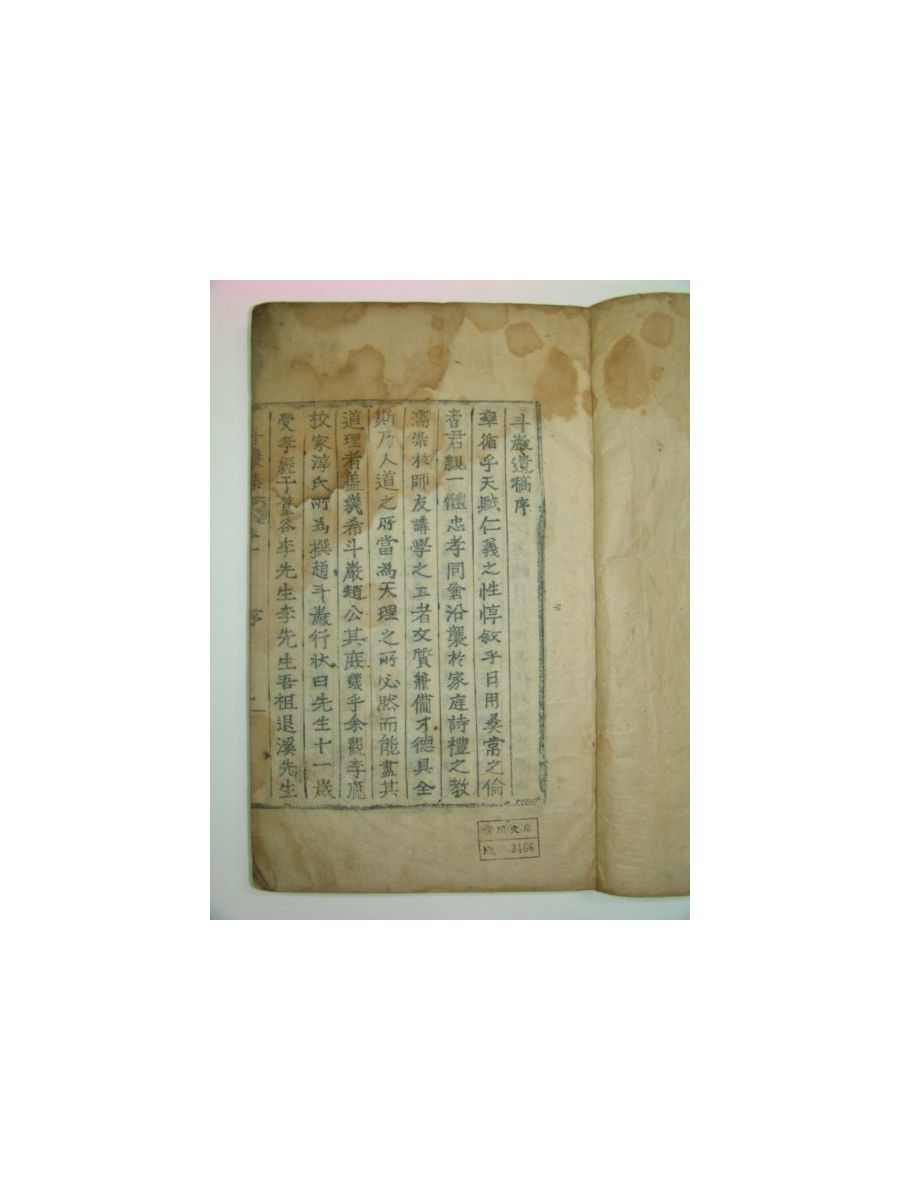 斗巖遺稿序
率循乎天賦仁義之性惇叙乎日用彛常之倫
者君親一體忠孝同途沿襲於家庭詩禮之敎
濡染於師友講學之工者文質兼備才德具全
斯乃人道之所當爲天理之所必然而能盡其
道理者盖幾希斗巖趙公其庶幾乎余觀李
挍家淳氏所為撰趙斗巖行狀曰先生十一歲
受孝經于谷李先生李先生吾祖退溪先生
序
文庫
No. 3466